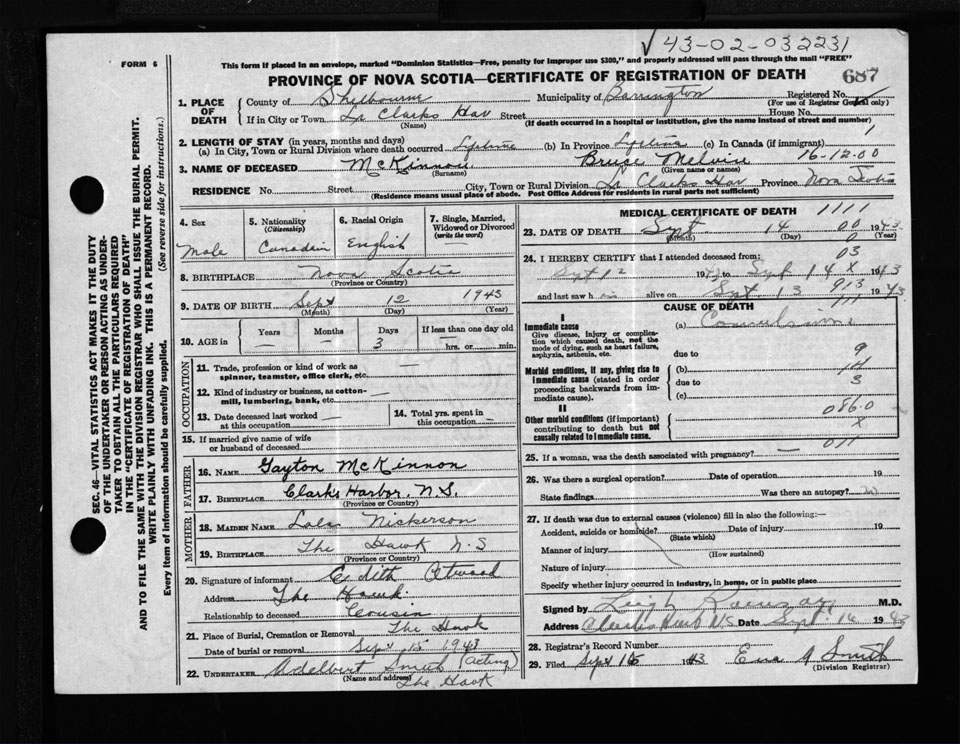 √43-02-032231
FORM 6
This form if placed in an envelope, marked "Dominion Statistics—Free, penalty for improper use $300," and properly addressed will pass through the mail "FREE"
PROVINCE OF NOVA SCOTIA—CERTIFICATE OF REGISTRATION OF DEATH 687
1. PLACE OF DEATH { County of Shelbourne Municipality of Barrington Registered No.
(For use of Registrar General only)
If in City or Town Clarks Har Street House No.
(Name) (If death occurred in a hospital or institution, give the name instead of street and number)
2. LENGTH OF STAY (in years, months and days)
(a) In City, Town or Rural Division where death occurred Lifetime (b) In Province Lifetime (c) In Canada (if immigrant) 1
3. NAME OF DECEASED McKinnon Bruce Melvin 16-12-00
(Surname) (Given name or names)
RESIDENCE No. Street City, Town or Rural Division Clarks Har Province Nova Scotia
(Residence means usual place of abode. Post Office Address for residents in rural parts not sufficient)
SEC. 46—VITAL STATISTICS ACT MAKES IT THE DUTY
OF THE UNDERTAKER OR PERSON ACTING AS UNDER-
TAKER TO OBTAIN ALL THE PARTICULARS REQUIRED
IN THE "CERTIFICATE OF REGISTRATION OF DEATH"
AND TO FILE THE SAME WITH THE DIVISION REGISTRAR WHO SHALL ISSUE THE BURIAL PERMIT.
WRITE PLAINLY WITH UNFADING INK. THIS IS A PERMANENT RECORD.
Every item of information should be carefully supplied. (See reverse side for instructions.)
4. Sex
Male
5. Nationality
(Citizenship)
Canadain
6. Racial Origin
English
7. Single, Married,
Widowed or Divorced
(write the word)
8. BIRTHPLACE Nova Scotia
(Province or Country)
9. DATE OF BIRTH Sept 12 1943
(Month) (Day) (Year)
10. AGE in { Years Months Days If less than one day old
— — 3 hrs. or min.
OCCUPATION
11. Trade, profession or kind of work as
spinner, teamster, office clerk, etc. —
12. Kind of industry or business, as cotton-
mill, lumbering, bank, etc. —
13. Date deceased last worked
at this occupation —
14. Total yrs. spent in
this occupation —
15. If married give name of wife
or husband of deceased
FATHER
16. NAME Gayton McKinnon
17. BIRTHPLACE Clarks Harbor, N.S.
(Province or Country)
MOTHER
18. MAIDEN NAME Lola Nickerson
19. BIRTHPLACE The Hawk N.S
(Province or Country)
20. Signature of informant Edith Atwood
Address The Hawk
Relationship to deceased Cousin
21. Place of Burial, Cremation or Removal The Hawk
Date of burial or removal Sept 15 1943
22. UNDERTAKER Adelbert Smith (acting)
(Name and address) The Hawk
MEDICAL CERTIFICATE OF DEATH 1111
23. DATE OF DEATH Sept 14 00 1943
(Month) (Day) (Year)
03
24. I HEREBY CERTIFY that I attended deceased from:
Sept 12 1943 to Sept 14 x 1943
and last saw h im alive on Sept 13 913 1943
CAUSE OF DEATH 1111
I
Immediate cause
Give disease, injury or complica-
tion which caused death, not the
mode of dying, such as heart failure,
asphyxia, asthenia, etc.
(a) Convulsions
due to 9
Morbid conditions, if any, giving rise to
immediate cause (stated in order
proceeding backwards from im-
mediate cause).
(b)
due to 3
(c)
II
Other morbid conditions (if important)
contributing to death but not
causally related to immediate cause.
086.0
x
011
25. If a woman, was the death associated with pregnancy? —
26. Was there a surgical operation? Date of operation 19
State findings Was there an autopsy? no
27. If death was due to external causes (violence) fill in also the following:—
Accident, suicide or homicide? Date of injury 19
(State which)
Manner of injury
(How sustained)
Nature of injury
Specify whether injury occurred in industry, in home, or in public place
Signed by Leigh M.D.
Address Clarks Harb N.S Date Sept 14 1943
28. Registrar's Record Number
29. Filed Sept 16 1943 Ena A Smith
(Division Registrar)